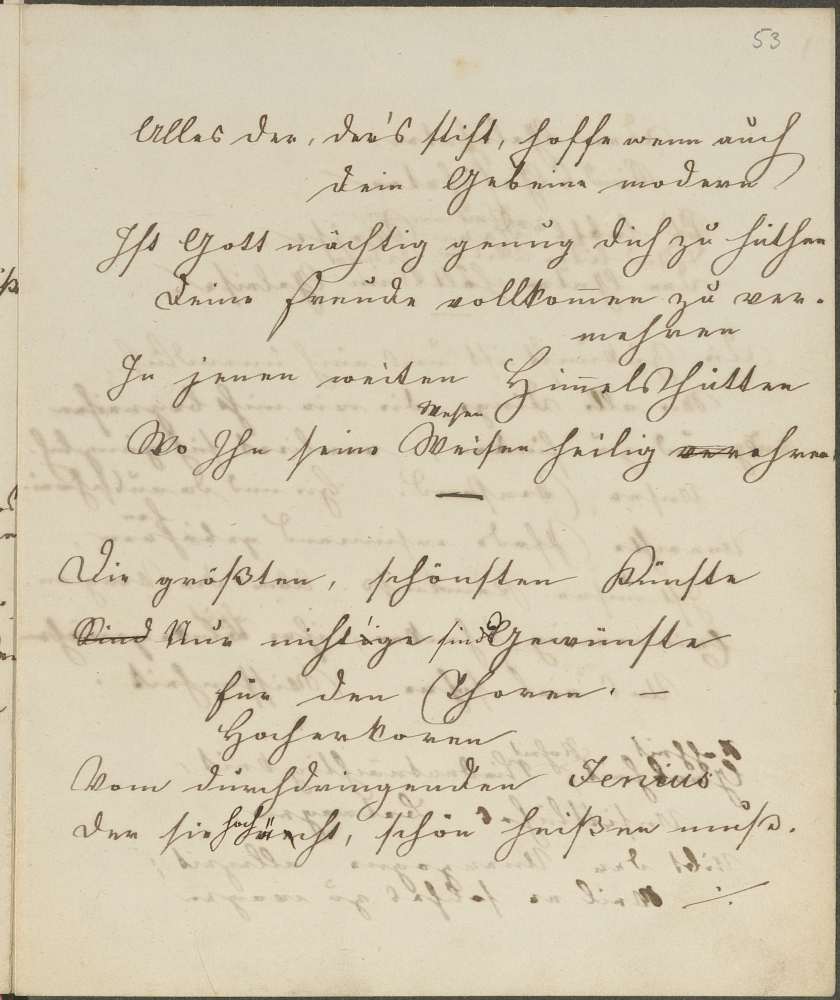 53
Alles der, der's stift, hoffe wenn auch
dein Gebeine modern
Ist Gott mächtig genug dich zu hüthen
Deine Freude vollkom̅en zu ver-
mehren
In jenen weiten Him̅elshütten
Wesen
Wo Ihn seine Weisen heilig verehren
Die größten, schönsten Künste
Sind Nur nichtige sind Gewünste
für den Thoren. —
Hocherkoren
Vom durchdringenden Jenius
Der sie hoch, schön heißen muß.